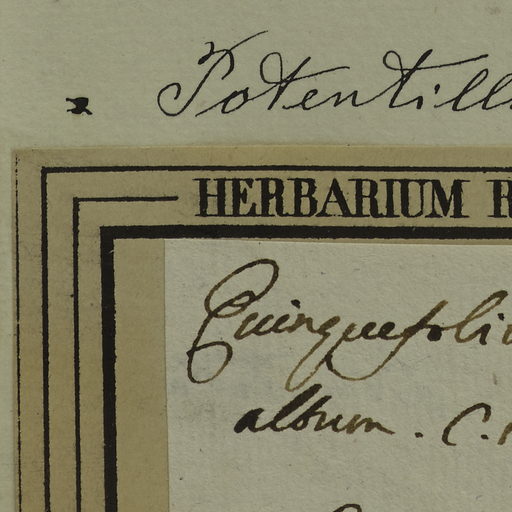 Potentill
HERBARIUM R
Quinquefoli
album. C.